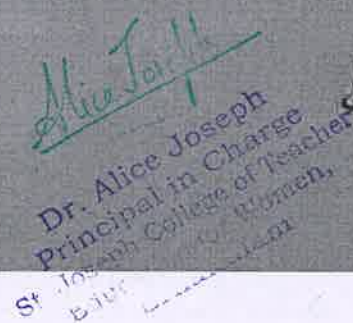 Alice Joseph
Dr. Alice Joseph
Principal in Charge
St. Joseph College of Teacher
Women,